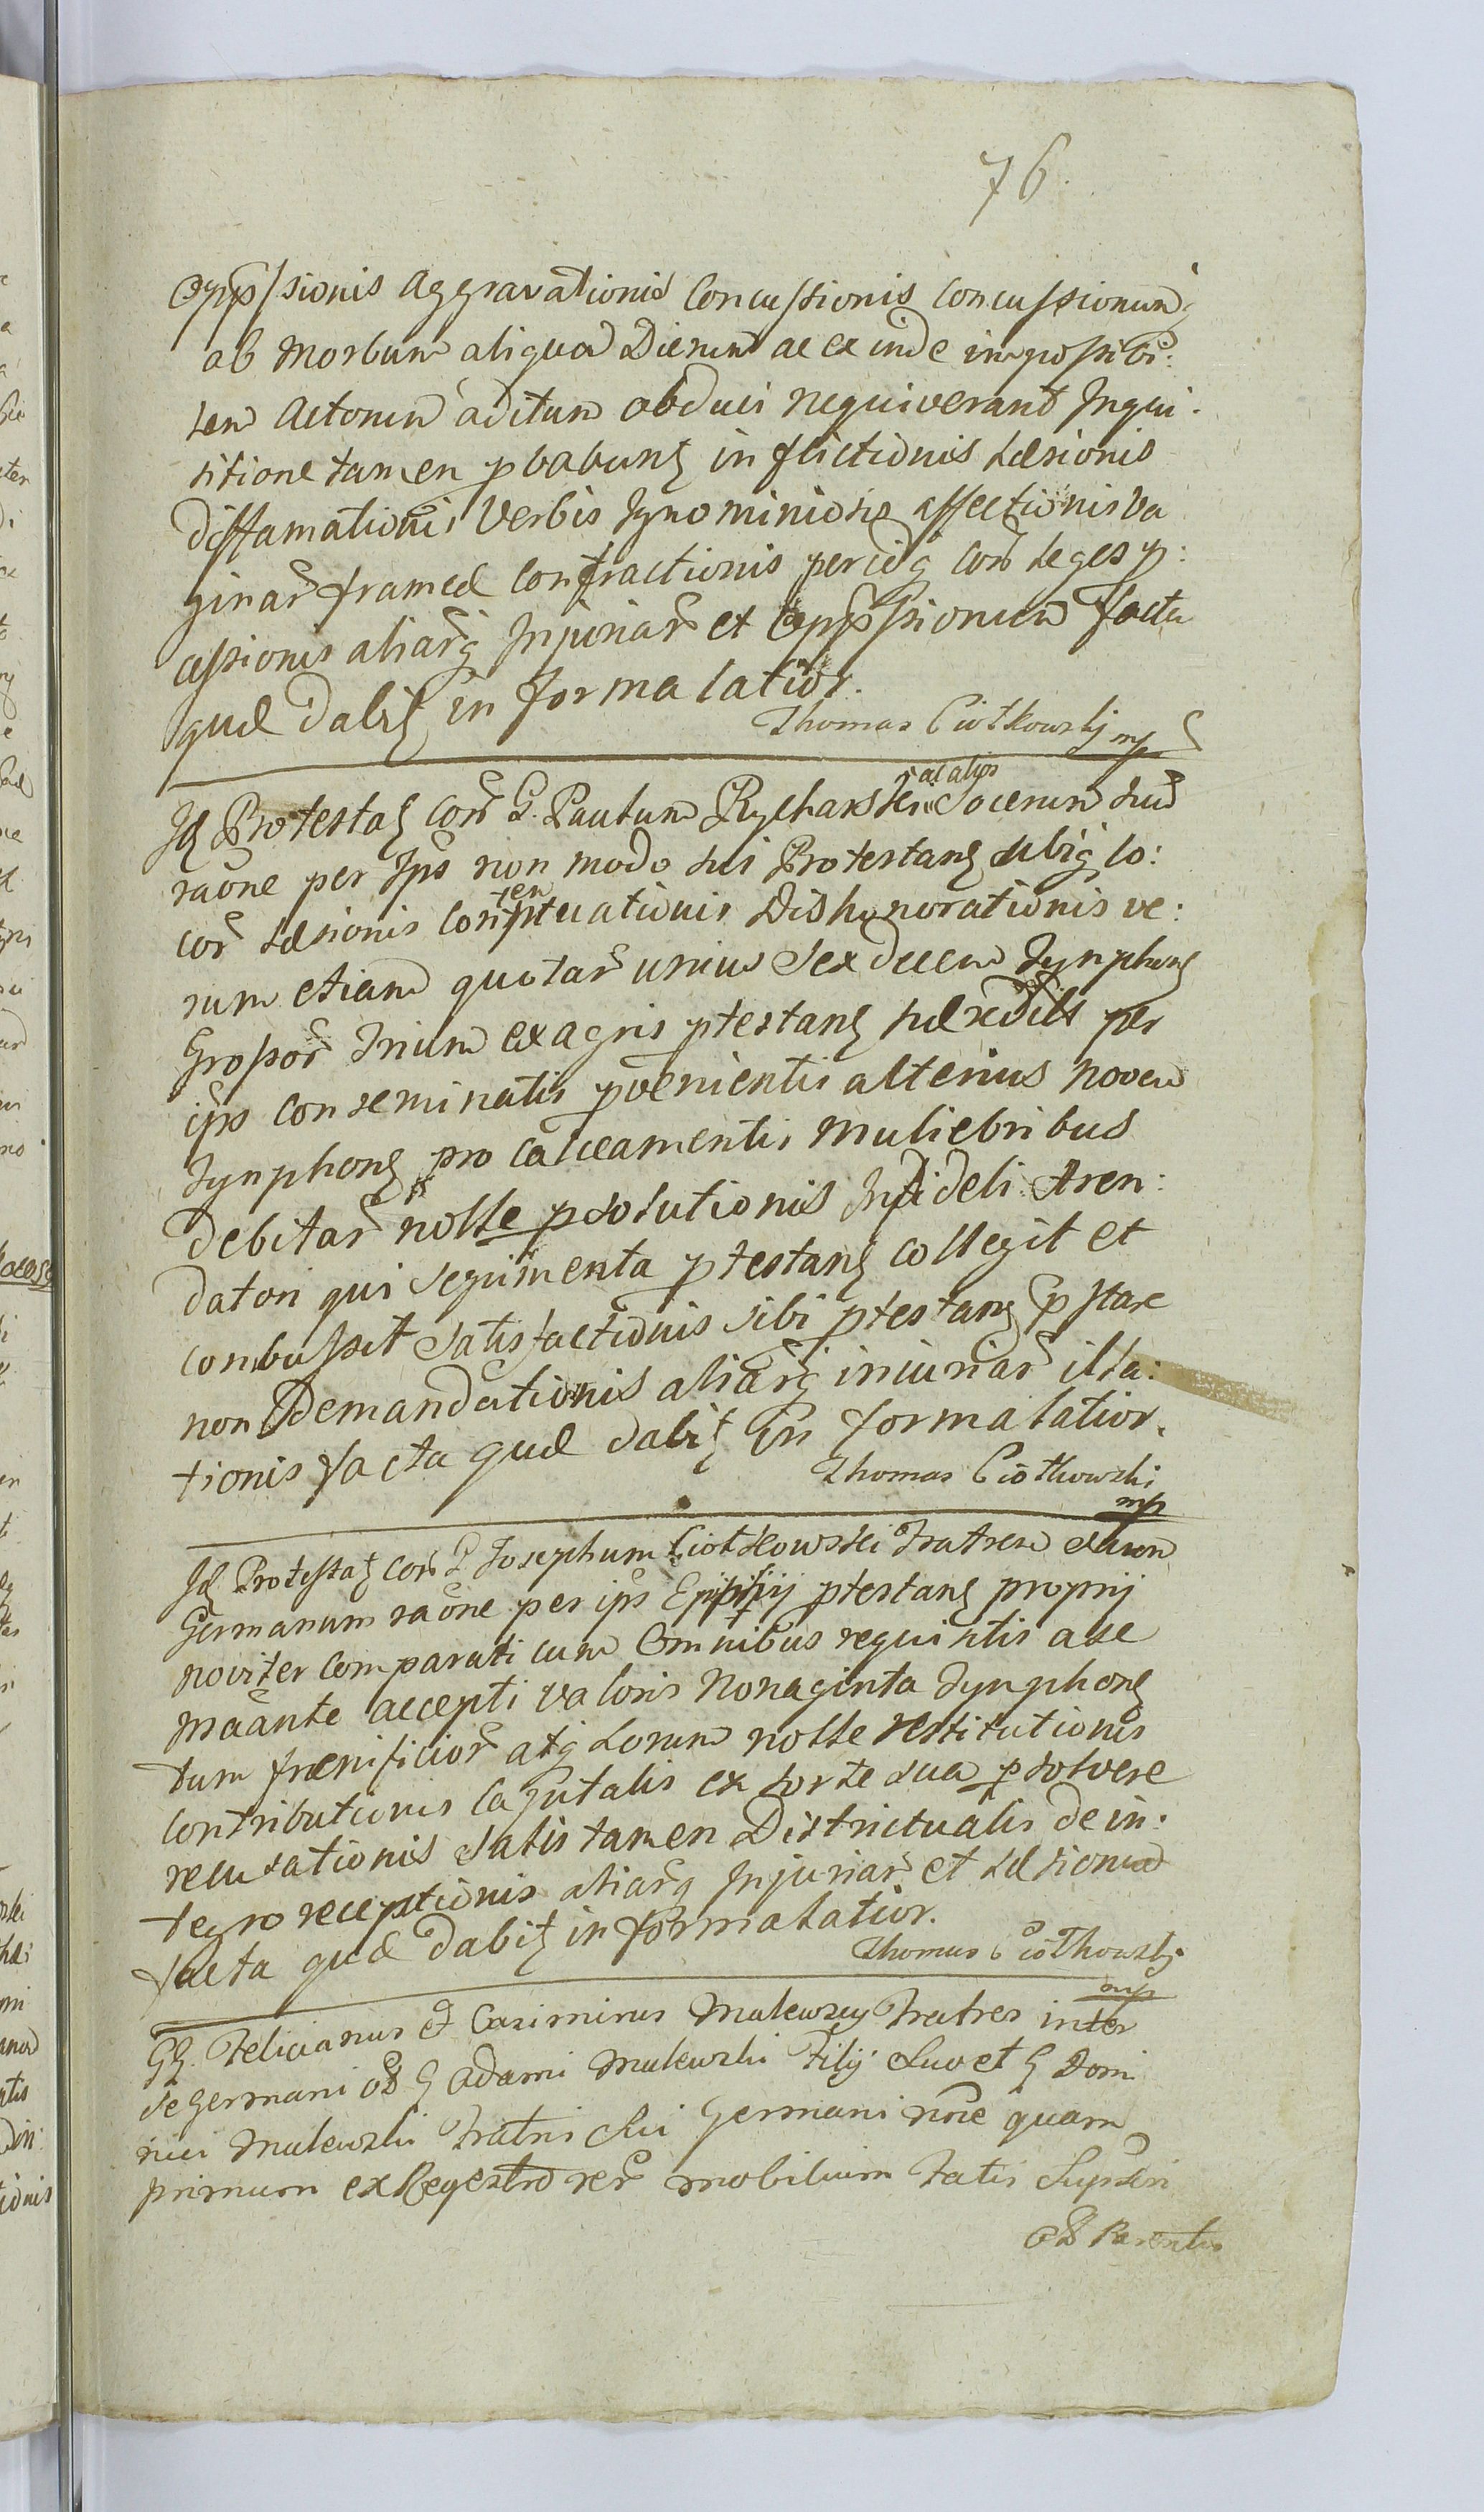 76.
Opp̄ssionis Aggravationis Concussionis Concussionum
ab Morbum aliqua Dierum ac ex inde impossibi:
lem Actorum aditum obduci nequiverant Inqui:
sitione tamen pbabunt inflictionis Læsionis
diffamationis Verbis Ignominiosis affectionis Va
ginar̄ frameæ Confractionis peridq con̄ leges p:
cessionis aliarq̄ Injuriar̄ et Opp̄ssionum facta
quæ dabit in forma latior.
Thomas Ciołkowski mp
Id Protestat con̄ G. Paulum Rycharski Socerum suū
et alios
raōne per Ips̄ non modo sui Protestant ubiq lo:
cor̄ Læsionis Contentuationis Dishonorationis ve:
rum etiam quotar̄ unius Sexdecem Tynphonū
Grossor̄ Trium ex agris ptestant hæredit̄ per
ips̄ conseminatis pvenientis alterius Novem
Tynphonū pro calceamentis Muliebribus
debitar̄ nolle psolutionis Infideli Aren:
datori qui segimenta ptestant collegit et
combussit Satisfactionis sibi ptestant p̄stare
non Demandationis aliarq̄ iniuriar̄ illa:
tionis facta quæ dabit in forma latior.
Thomas Ciołkowski
mp
Id Protestat con̄ G Josephum Ciołkowski Fratrem Suum
Germanum raōne per ips̄ Ephippij ptestant proprij
noviter comparati cum Omnibus requisitis a se
māante accepti valoris Nonaginta Tynphonū
tum frænificior̄ atq Lorum nolle restitutionis
Contributionis Capitalis ex sorte sua psolvere
recusationis Satis tamen Districtualis de in:
tegro receptionis aliarq̄ Injuriar̄ et Læsionum
facta quæ dabit in forma latior.
Thomas Ciołkowski
mp
GG. Felicianus et Casimirus Malewscy Fratres inter
se Germani olim G Adami Malewski Filij Suo et G Domi
nici Malewski Fratris Sui Germani noīe quam
primum ex Regestro rer̄ mobilium Fatis Supremi
olim Parentis